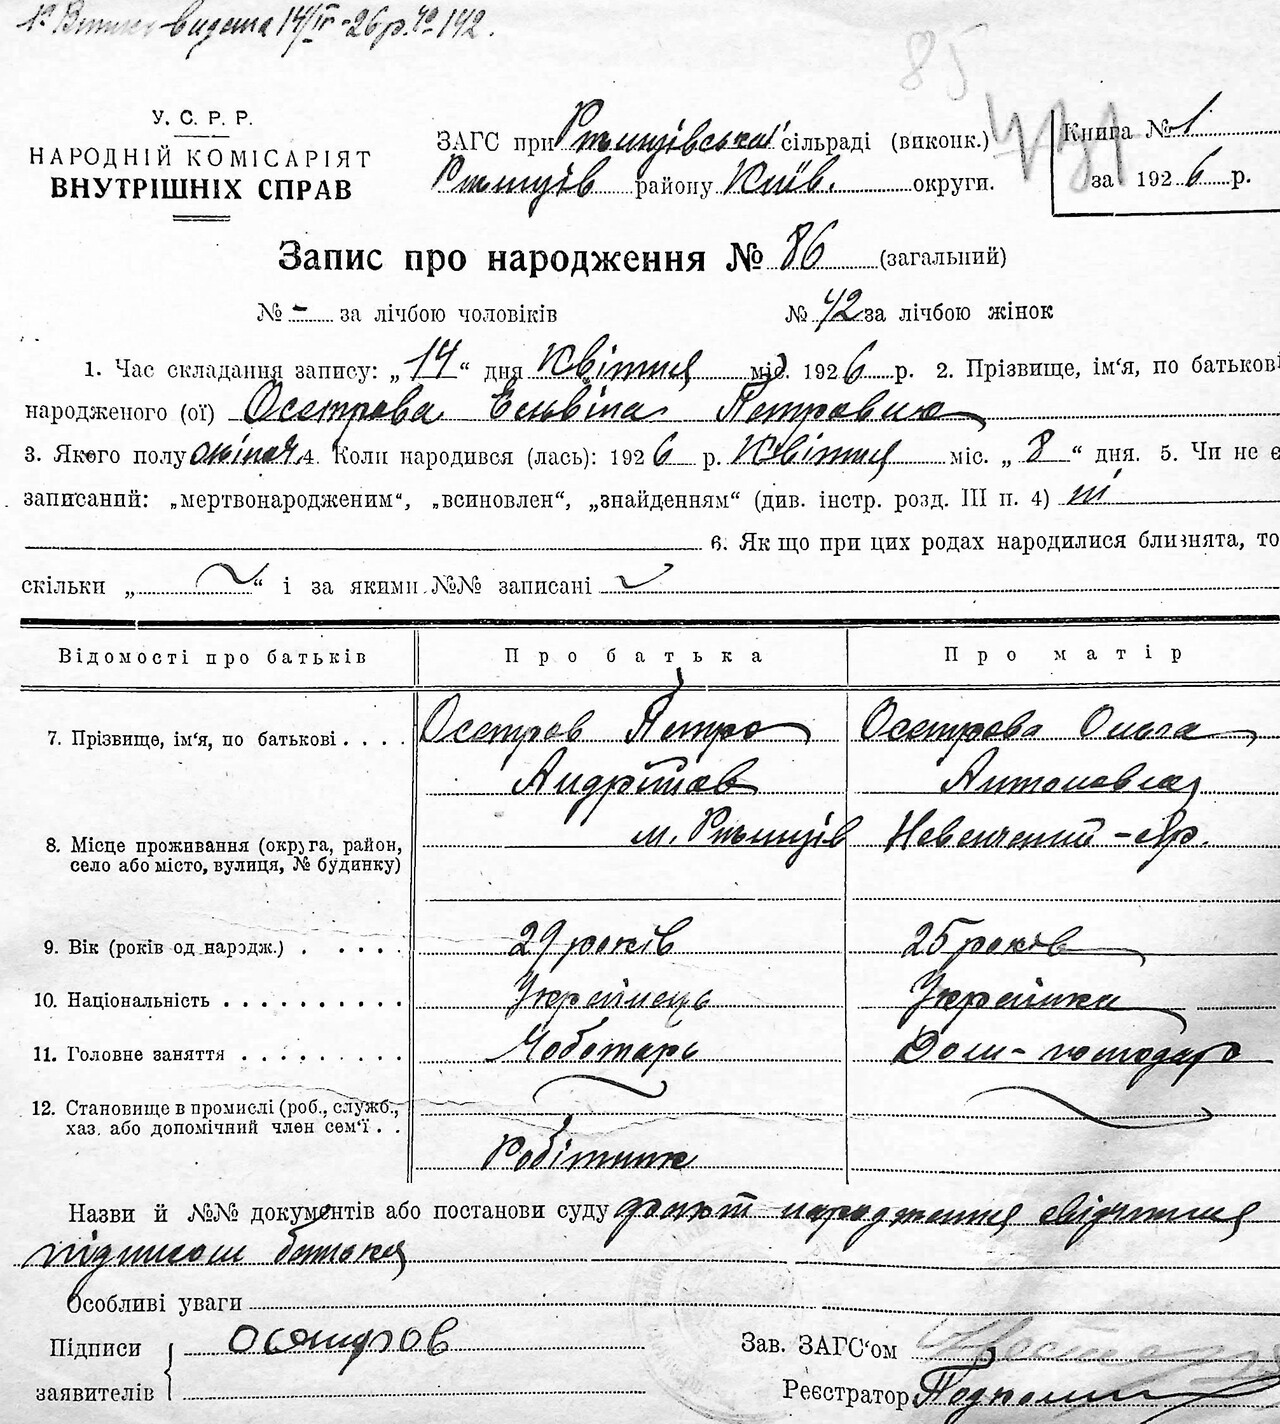 видана 14/IV-26р. № 142.
85
У. С. Р. Р.
НАРОДНІЙ КОМІСАРІЯТ
ВНУТРІШНІХ СПРАВ
ЗАГС при Ржищівській сільраді (виконк.)
Ржищів району Київ. округи.
Книга № 1
за 1926 р.
Запис про народження № 86 (загальний)
№ - за лічбою чоловіків № 42 за лічбою жінок
1. Час складання запису: „14“ дня Квітня міс. 1926 р. 2. Прізвище, ім‘я, по батькові
народженого (ої) Осетрова Ельвіна Петровна
3. Якого полу жіноч. 4. Коли народився (лась): 1926 р. Квітня міс. „8“ дня. 5. Чи не є
записаний: „мертвонародженим“, „всиновлен“, „знайденням“ (див. інстр. розд. III п. 4) ні
6. Як що при цих родах народилися близнята, то
скільки „ “ і за якими №№ записані
Відомості про батьків Про батька Про матір
7. Прізвище, ім‘я, по батькові . . . . Осетров Петро Осетрова Ольга
Андріїов Антоновна
8. Місце проживання (округа, район, село або місто, вулиця, № будинку) м. Ржищів
9. Вік (років од нарэдж.) . . . . . 29 років 25 років
10. Національність . . . . . . . . . . Українець Українка
11. Головне заняття . . . . . . . . . Чоботарь Дом-господар
12. Становище в промислі (роб., служб.,
хаз. або допомічний член сем‘ї . . Робітник
Назви й №№ документів або постанови суду факт народження свідчиться
підписом батька
Особливі уваги
Підписи заявителів Осетров
Зав. ЗАГС‘ом
Реєстратор